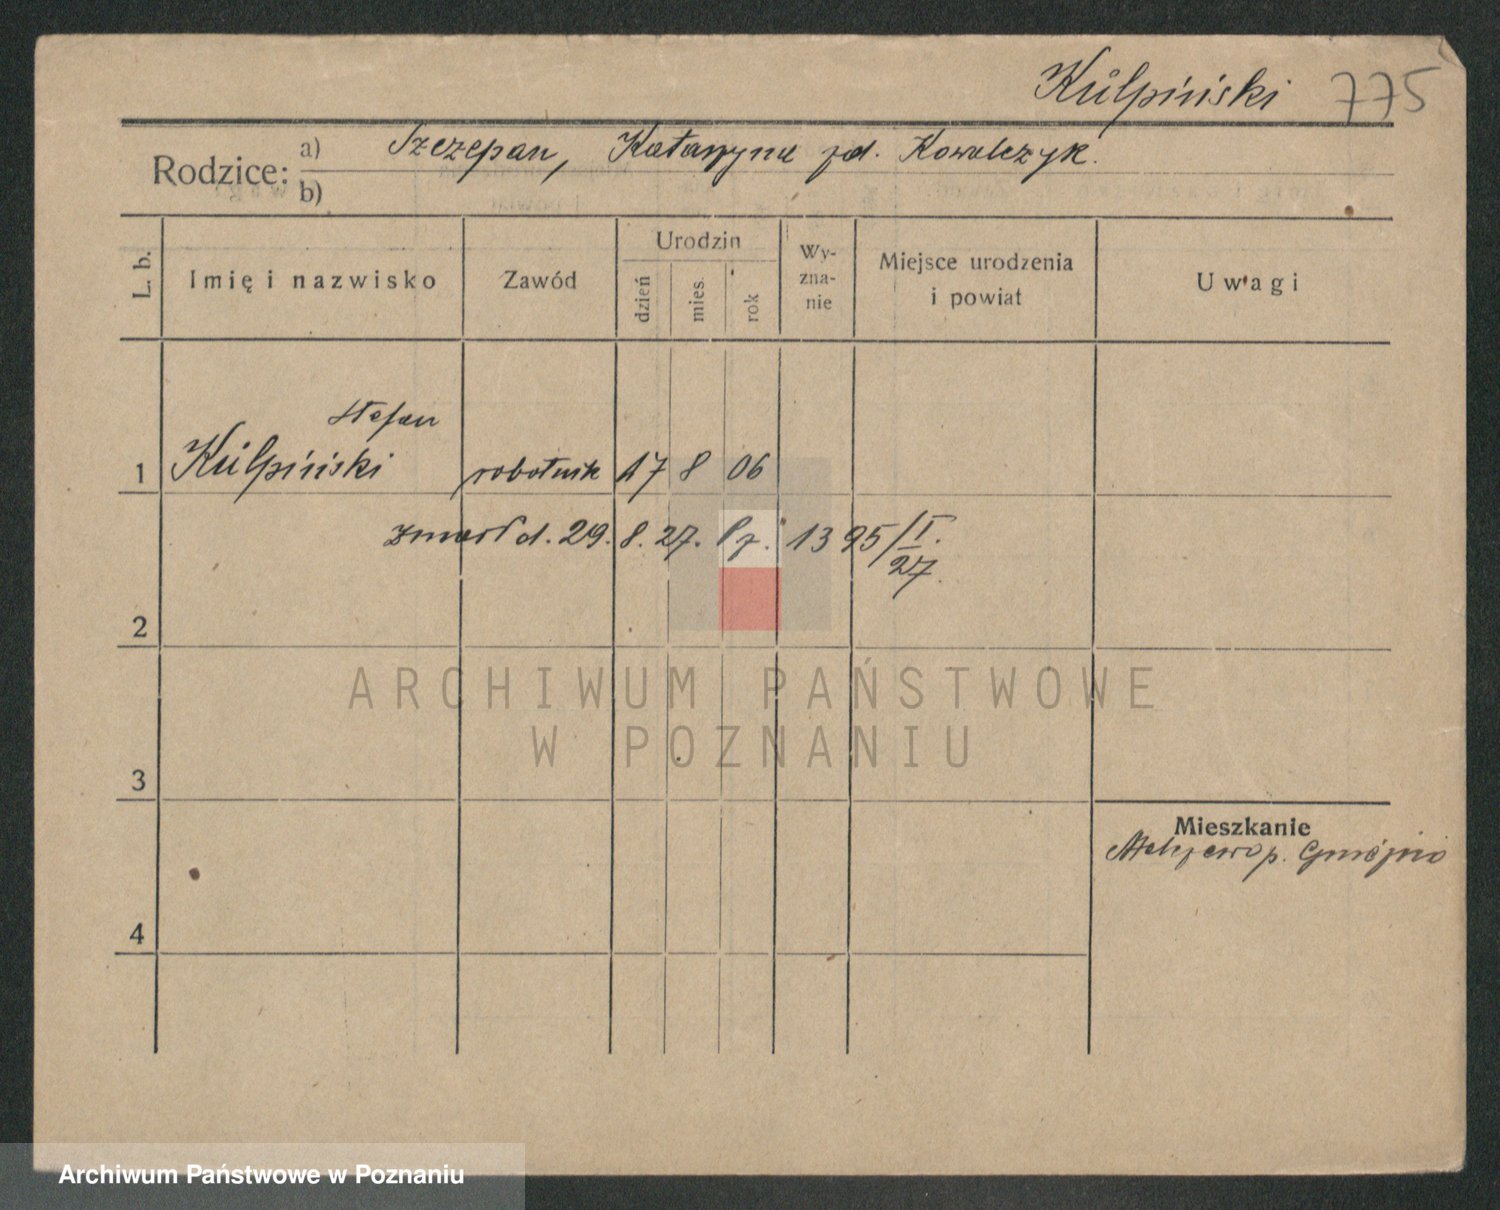 Kulpiński 775
Rodzice: a) Szczepan, Katarzyna zd. Kowalczyk.
b)
L. b.
Imię i nazwisko
Zawód
Urodzin
dzień
mies.
rok
Wy-
zna-
nie
Miejsce urodzenia
i powiat
Uwagi
Stefan
1 Kulpiński robotnik 17 8 06
zmarł d. 29. 8. 27. 1395/I.
27.
2
ARCHIWUM PAŃSTWOWE
W POZNANIU
3
Mieszkanie
p.
4
Archiwum Państwowe w Poznaniu